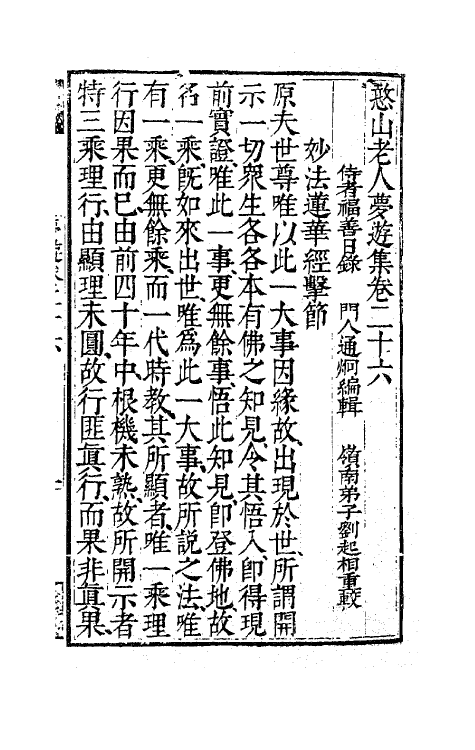 憨山老人夢遊集卷二十六
侍者福善日錄　門人通炯編輯　嶺南弟子劉起相重較
妙法蓮華經擊節
原夫世尊唯以此一大事因緣故出現於世所謂開
示一切眾生各各本有佛之知見令其悟入即得現
前實證唯此一事更無餘事悟此知見即登佛地故
名一乘既如來出世唯為此一大事故所說之法唯
有一乘更無餘乘而一代時教其所顯者唯一乘理
行因果而已由前四十年中根機未熟故所開示者
特三乘理行由顯理未圓故行匪眞行而果非眞果